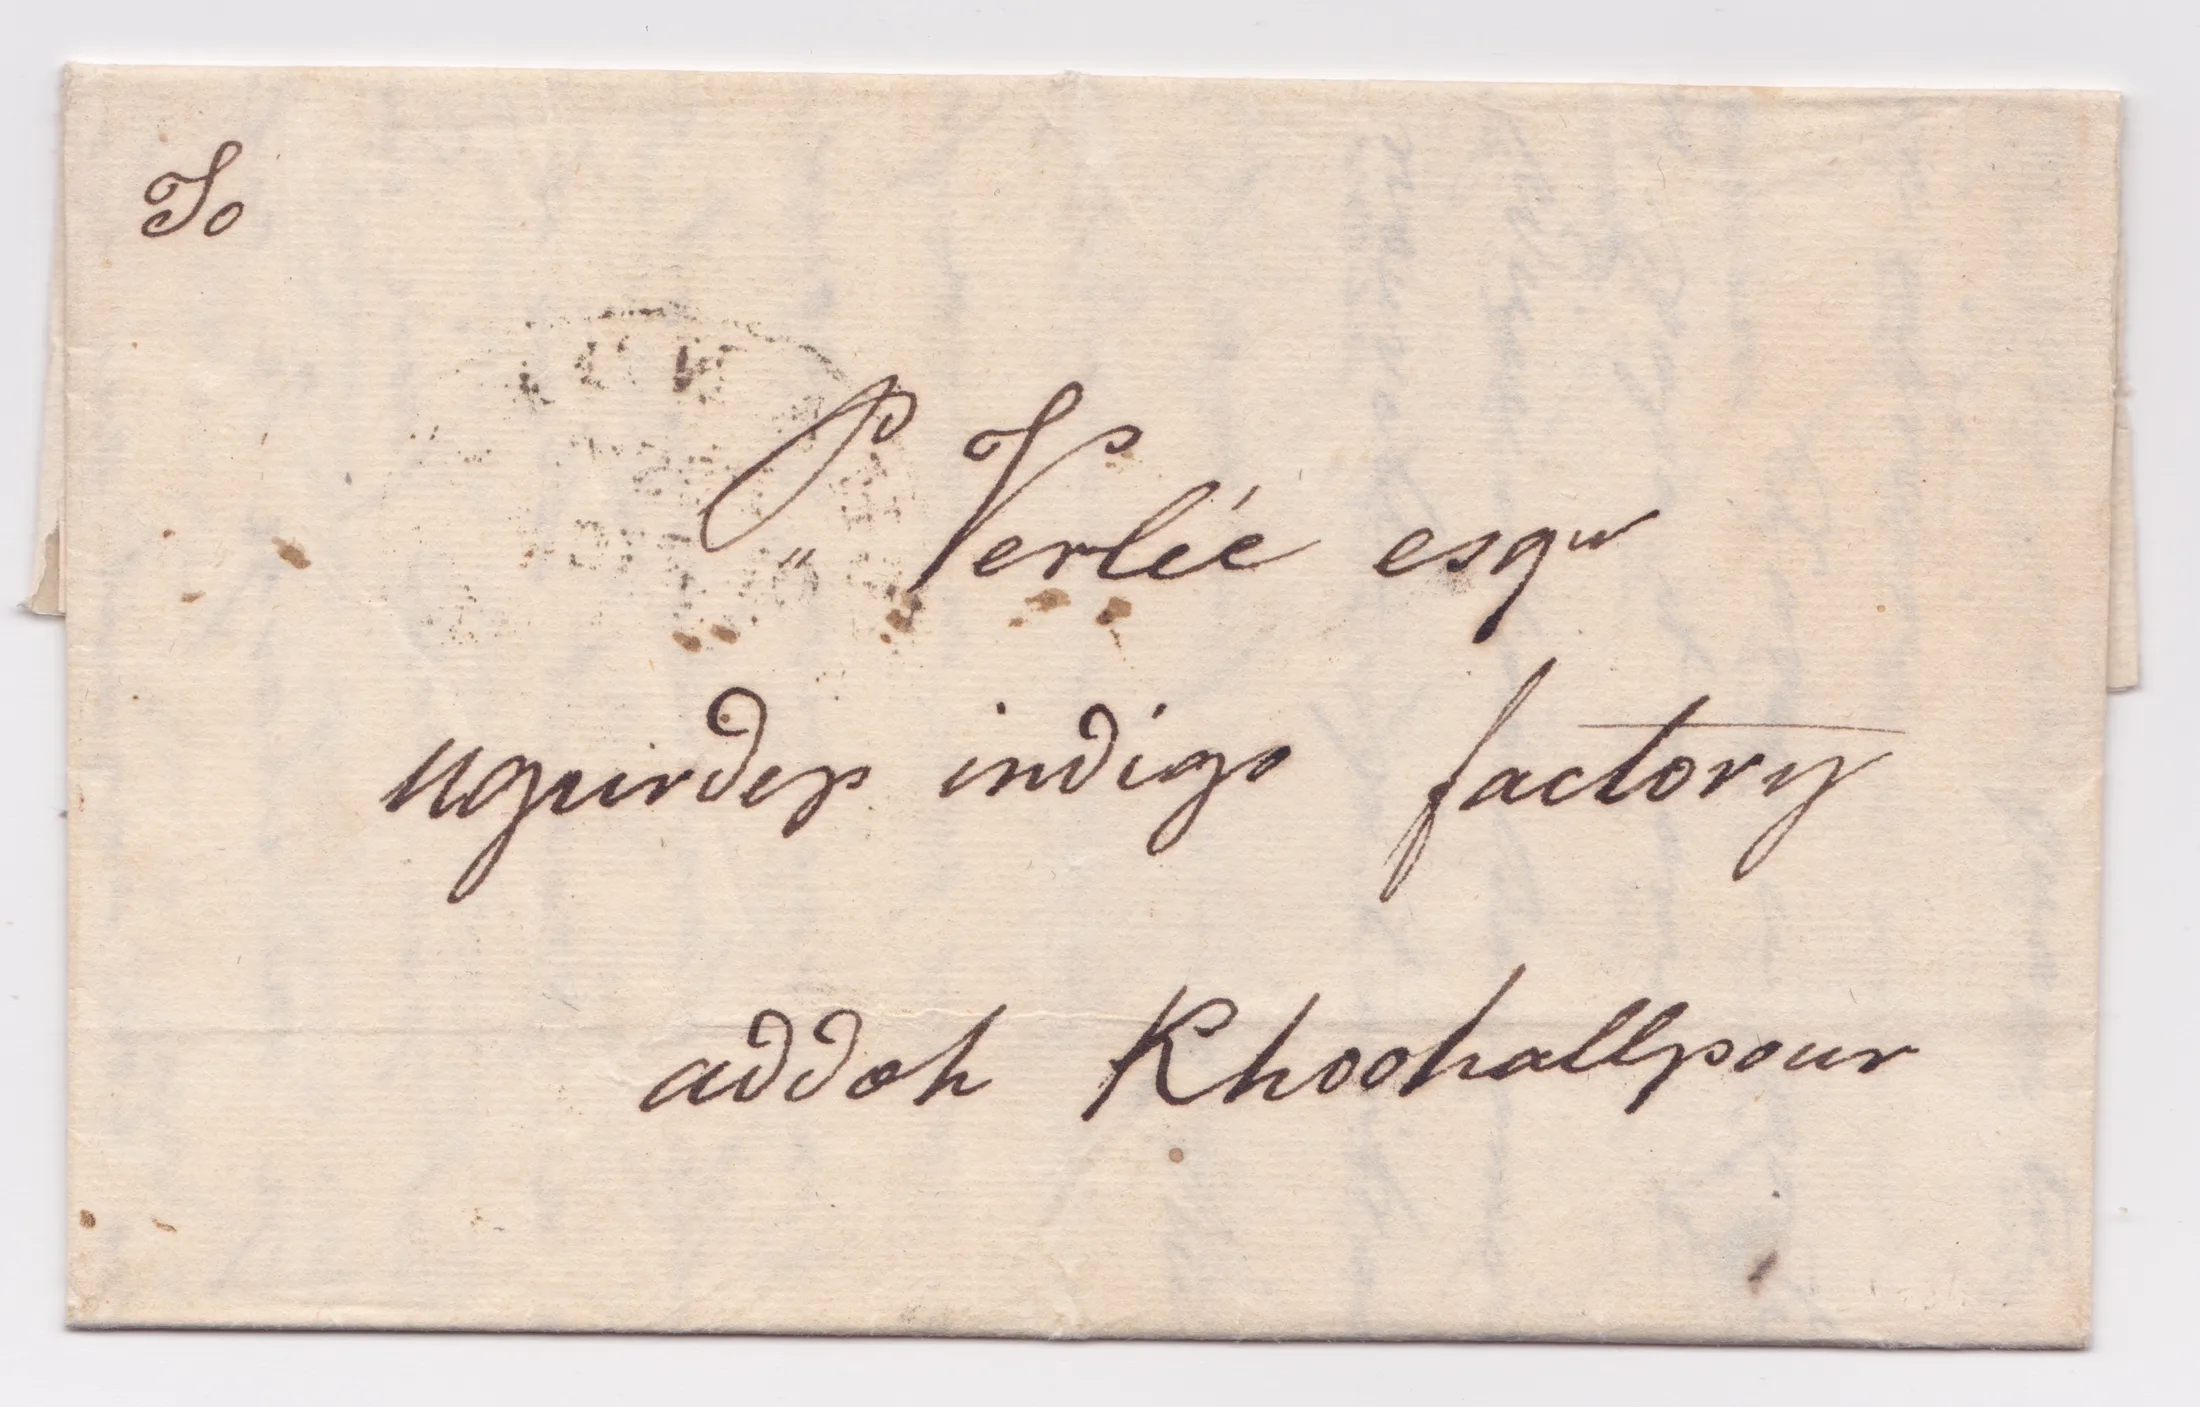 To
P. Verlée esqr
ugurdep indigo factory
addoh Khoohallpour